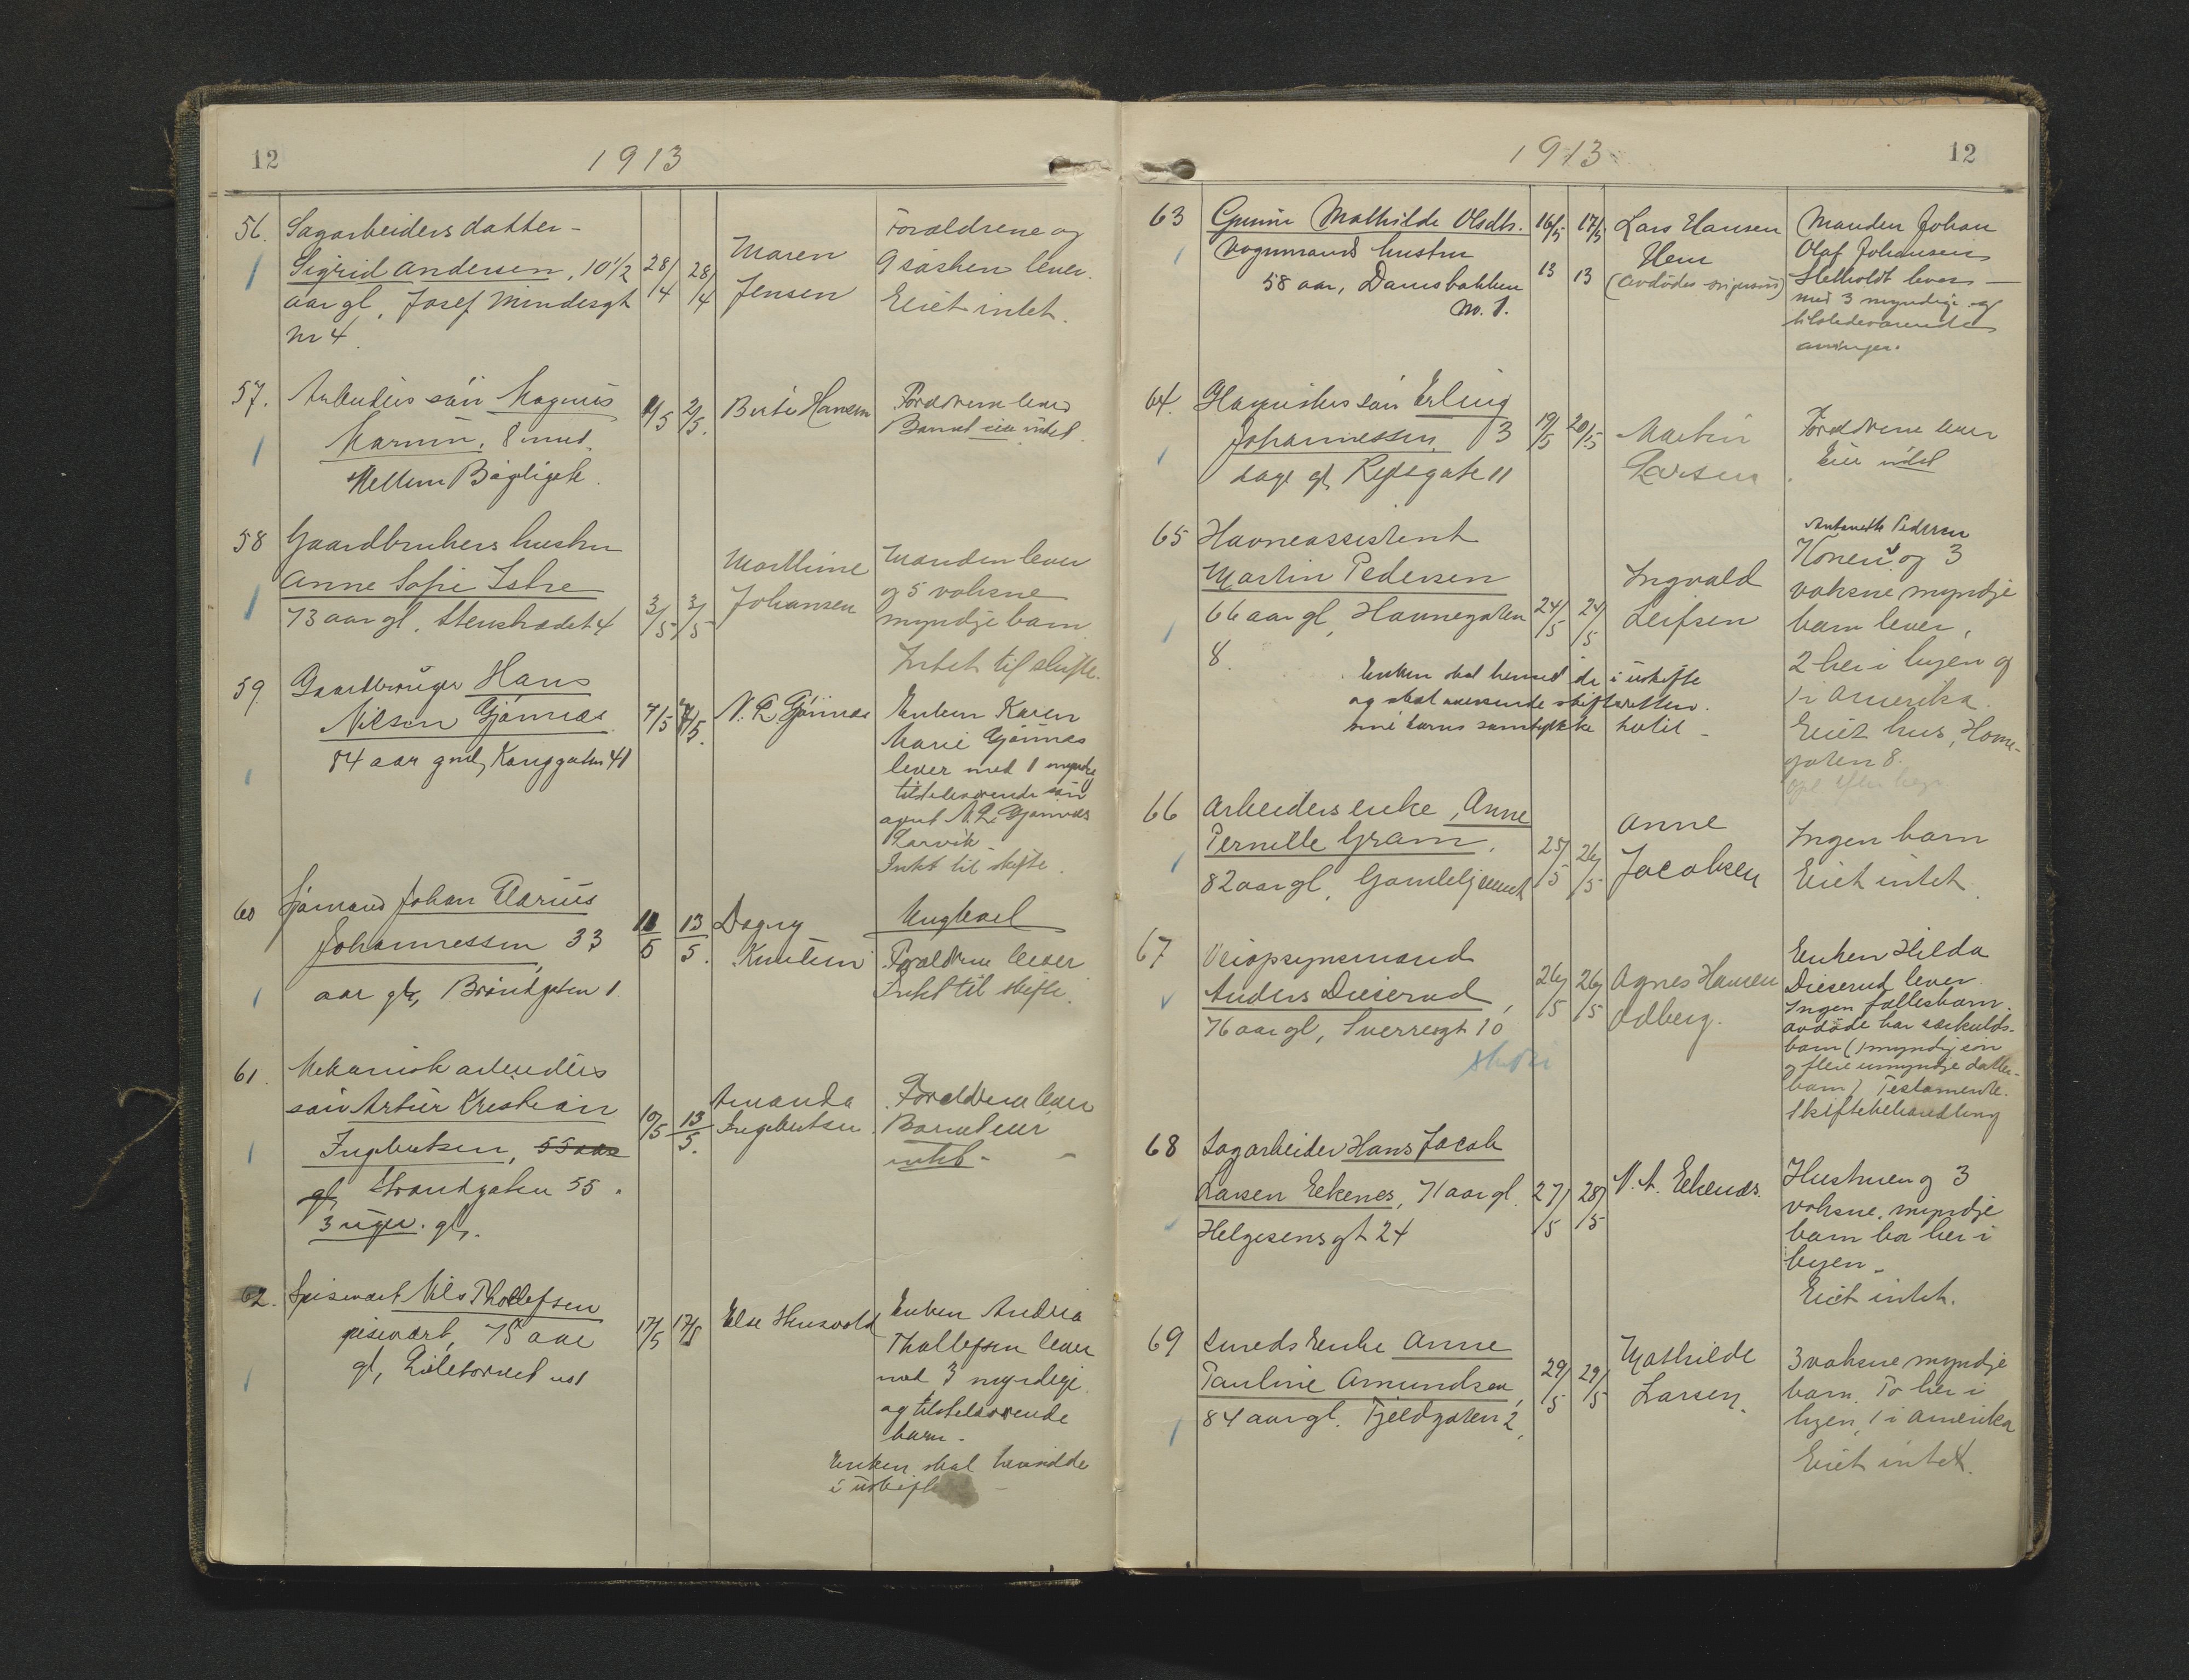 12
1913
56. Sagarbeiders datter -
Sigrid Andersen, 10 1/2
aar gl, Josef Mindesgt
nr 4.
28/4
28/4
Maren
Jensen
Forældrene og
9 søsken lever.
Eiet intet.
57. Arbeiders søn Magnus
8 mnd.
Mellem Bøgeligt.
1/5
2/5.
Berte Hansen
Forældrene lever
Barnet eier intet.
58 Gaardbrukers hustru
Anne Sofie Istre
73 aar gl, Stenstrædet 4
3/5
3/5
Marthine
Johansen
Manden lever
og 5 voksne
myndje barn
Intet til skifte.
59. Gaardbruger Hans
Nilsen Gjønnæs
84 aar gml, Konggaten 41
7/5
7/5.
N. L. Gjønnæs
Enken Karen
Marie Gjønnæs
lever med 1 myndig
tilstedeværende søn
agent N. L. Gjønnæs
Larvik.
Intet til skifte.
60 Sjømand Johan Elarius
Johannessen, 33
aar gl, Brøndgaten 1.
11/5
13/5.
Dagny
Knutsen
Ungkarl
Forældrene lever
Intet til skifte.
61. Mekanisk arbeiders
søn Artur Kristian
Ingebretsen, 55 aar
gl, Strandgaten 55.
3 uger. gl.
10/5
13/5.
Amanda
Ingebretsen
Forældrene lever
Barnet eier
intet -
62. Spisevært Nils Thollefsen
spisevært, 75 aar
gl, Lilletorvet
17/5
17/5
Else
Enken Andrea
Thollefsen lever
med 3 myndige
og tilstedeværende
barn.
Enken skal hensidde
i uskifte -
1913
12
63 Gunine Mathilde Olsdtr.
Vognmands hustru
58 aar, Damsbakken
No. 1.
16/5 13
17/5 13
Lars Hansen
Hem
(avdødes svigersøn)
Manden Johan
Olaf Johansen
lever -
med 3 myndige og
tilstedeværende
arvinger.
64. søn Erling
Johannessen, 3
dage gl, Revegate 11
19/5
20/5
Martin
Larsen
Forældrene lever
Eier intet
65 Havneassistent
Martin Pedersen
66 aar gl, Havnegaten
8.
24/5
24/5
Ingvald
Leifsen
Antonette Pedersen
Konen og 3
voksne myndje
barn lever,
2 her i byen og
1 i Amerika.
Eiet hus, Havne-
gaten 8.
Enken skal hensidde i uskifte
og skal indsende skifteretten
sine barns samtykke hertil -
66 Arbeiders enke, Anne
Pernille Gram,
82 aar gl, Gamlehjemmet
25/5
26/5
Anne
Jacobsen
Ingen barn
Eiet intet.
67 Veiopsynsmand
Anders Dieserud,
76 aar gl, Sverresgt 10
26/5
26/5
Agnes Hansen
Odberg.
Enken Hilda
Dieserud lever.
Ingen fællesbarn.
avdøde har særkulds-
barn (1 myndig søn
og flere umyndje datter-
barn) Testamente.
Skiftebehandling
68 Sagarbeider Hans Jacob
Larsen Eekenes, 71 aar gl.
Helgesensgt 24
27/5
28/5
N. A. Eekenæs.
Hustruen og 3
voksne, myndje
barn bor her i
byen.
Eiet intet.
69 Smeds Enke Anne
Pauline Amundsen,
84 aar gl. Fjeldgaten 2,
29/5
29/5
Mathilde
Larsen.
3 voksne myndje
barn. To her i
byen, 1 i Amerika
Eiet intet.